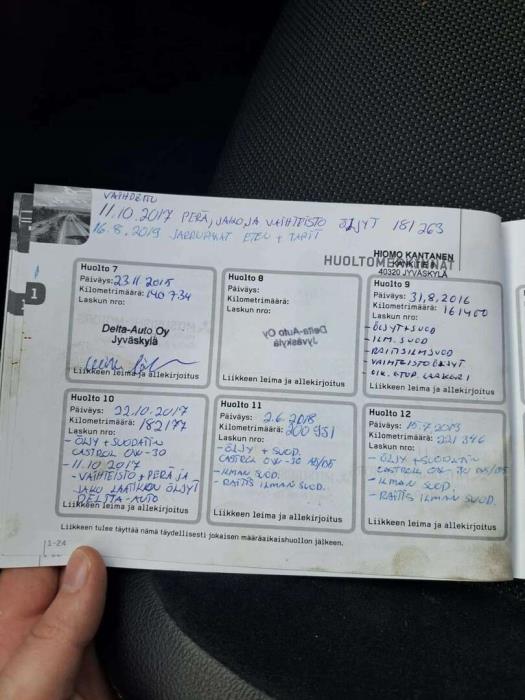 VAIHDETTU
11.10.2017 PERÄ, JAKO JA VAIHTEISTO ÖLJYT 181263
16.8.2019 JARRUPALAT ETEN + TAPIT
HUOLTOMERKINNÄT
HIOMO KANTANEN
40320 JYVÄSKYLÄ
1
Huolto 7
Päiväys: 23.11.2015
Kilometrimäärä: 140734
Laskun nro:
Delta-Auto Oy
Jyväskylä
Liikkeen leima ja allekirjoitus
Huolto 8
Päiväys:
Kilometrimäärä:
Laskun nro:
Delta-Auto Oy
Jyväskylä
Liikkeen leima ja allekirjoitus
Huolto 9
Päiväys: 31.8.2016
Kilometrimäärä: 161400
Laskun nro:
- ÖLJYT + SUOD
- ILM. SUOD
- RAITISILM SUOD
- VAIHTEISTO ÖLJYT
- OIK. ETUP. LAAKERI
Liikkeen leima ja allekirjoitus
Huolto 10
Päiväys: 22.10.2017
Kilometrimäärä: 182177
Laskun nro:
- ÖLJY + SUODATIN
CASTROL 0W-30
- 11.10.2017
- VAIHTEISTO + PERÄ JA
JAKO LAATIKON ÖLJYT
DELTTA-AUTO
Liikkeen leima ja allekirjoitus
Huolto 11
Päiväys: 2.6.2018
Kilometrimäärä: 200951
Laskun nro:
- ÖLJY + SUOD.
CASTROL 0W-30
- ILMAN SUOD.
- RAITIS ILMAN SUOD.
Liikkeen leima ja allekirjoitus
Huolto 12
Päiväys: 15.7.2019
Kilometrimäärä: 221346
Laskun nro:
- ÖLJY + SUODATIN
CASTROL 0W-30
- ILMAN SUOD.
- RAITIS ILMAN SUOD.
Liikkeen leima ja allekirjoitus
Liikkeen tulee täyttää nämä täydellisesti jokaisen määräaikaishuollon jälkeen.
1-24